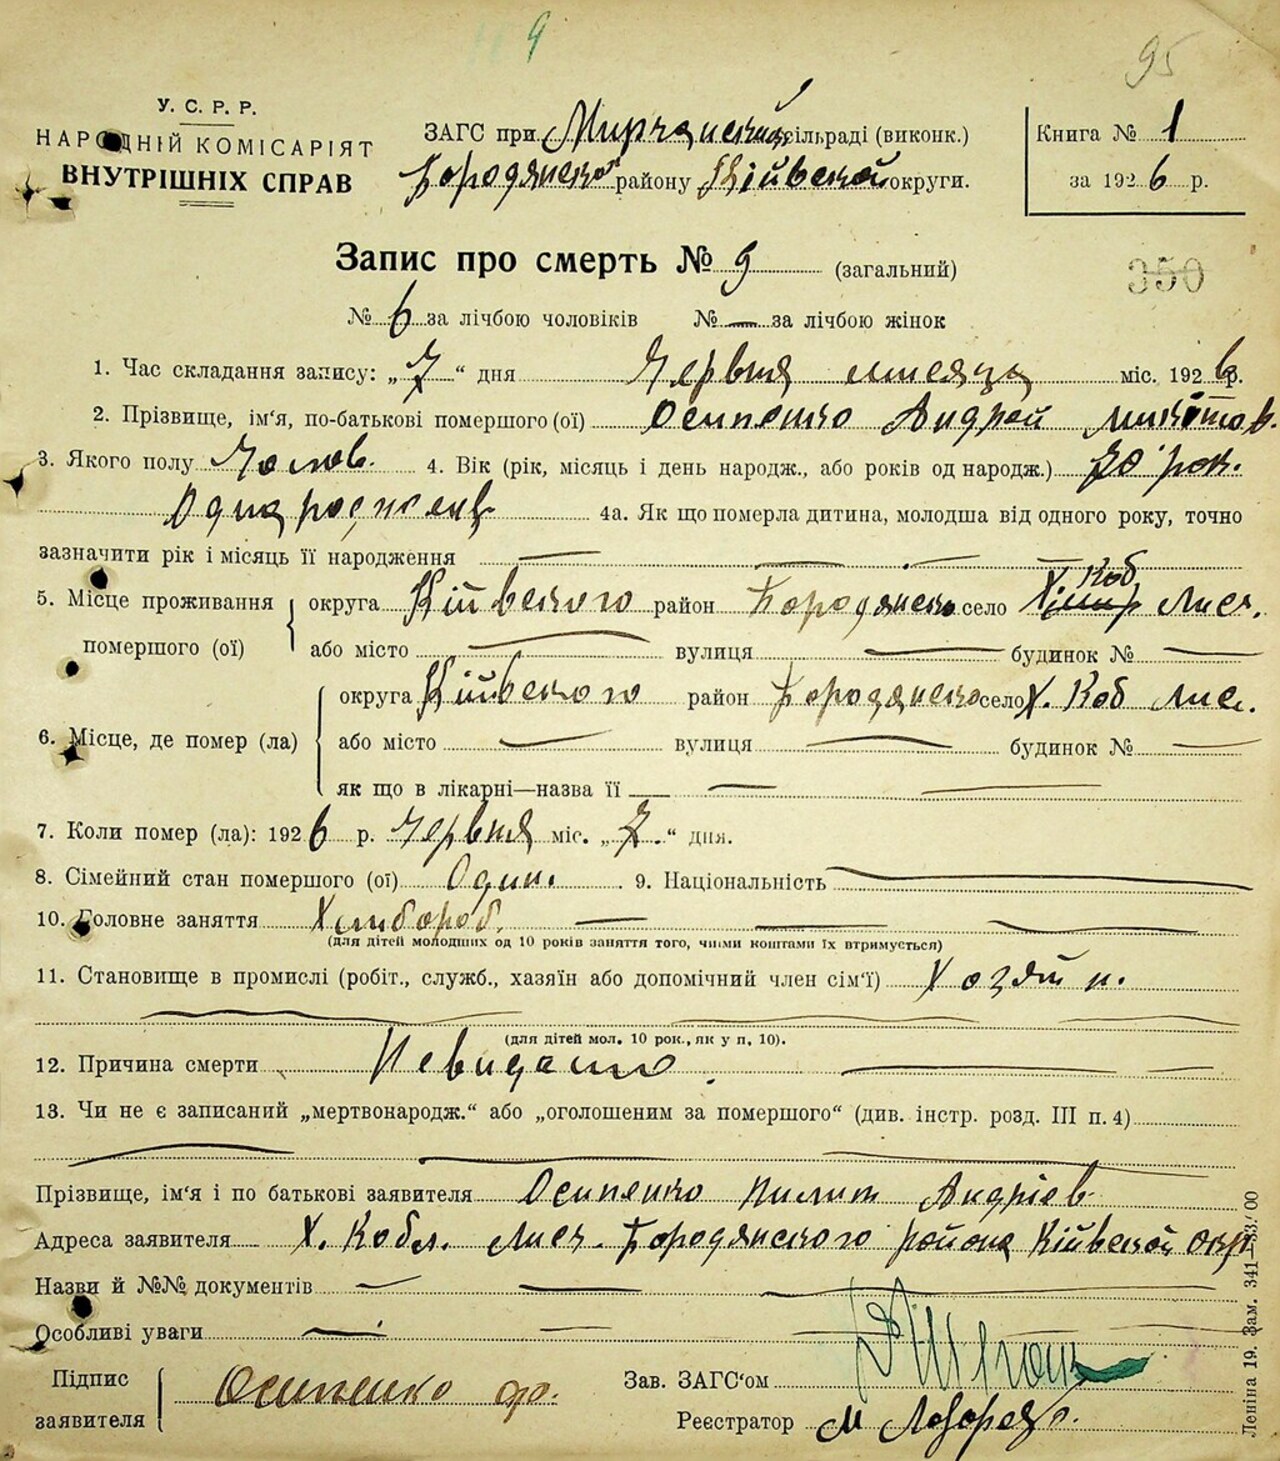 9
95
У. С. Р. Р.
НАРОДНІЙ КОМІСАРІЯТ
ВНУТРІШНІХ СПРАВ
ЗАГС при Мирчанской сільраді (виконк.)
Бородянского району Кіівской округи.
Книга № 1
за 1926 р.
Запис про смерть № 9 (загальний)
350
№ 6 за лічбою чоловіків № — за лічбою жінок
1. Час складання запису: „7“ дня Червня мисяца міс. 1926 р.
2. Прізвище, ім‘я, по-батькові помершого (ої) Осипенко Андрей Микитов.
3. Якого полу Чолов. 4. Вік (рік, місяць і день народж., або років од народж.) 70 рок.
4а. Як що померла дитина, молодша від одного року, точно
зазначити рік і місяць її народження
5. Місце проживання помершого (ої) округа Кіївского район Бородянско село Х. Коб Лися.
або місто — вулиця — будинок № —
6. Місце, де помер (ла) округа Кіївского район Бородянско село Х. Коб Лис.
або місто — вулиця — будинок № —
як що в лікарні—назва її —
7. Коли помер (ла): 1926 р. Червня міс. „7.“ дня.
8. Сімейний стан помершого (ої) Один. 9. Національність —
10. Головне заняття Хлибороб. —
(для дітей молодших од 10 років заняття того, чиїми коштами їх втримується)
11. Становище в промислі (робіт., служб., хазяїн або допомічний член сім‘ї) Хозяїн.
(для дітей мол. 10 рок., як у п. 10).
12. Причина смерти Невидомо.
13. Чи не є записаний „мертвонародж.“ або „оголошеним за помершого“ (див. інстр. розд. III п. 4)
Прізвище, ім‘я і по батькові заявителя Осипенко Пилип Андріев
Адреса заявителя Х. Кобл. Лися. Бородянского района Кіївской окр.
Назви й №№ документів —
Особливі уваги —
Підпис заявителя Осипенко
Зав. ЗАГС‘ом
Реєстратор М
Леніна 19. Зам. 341—33/00